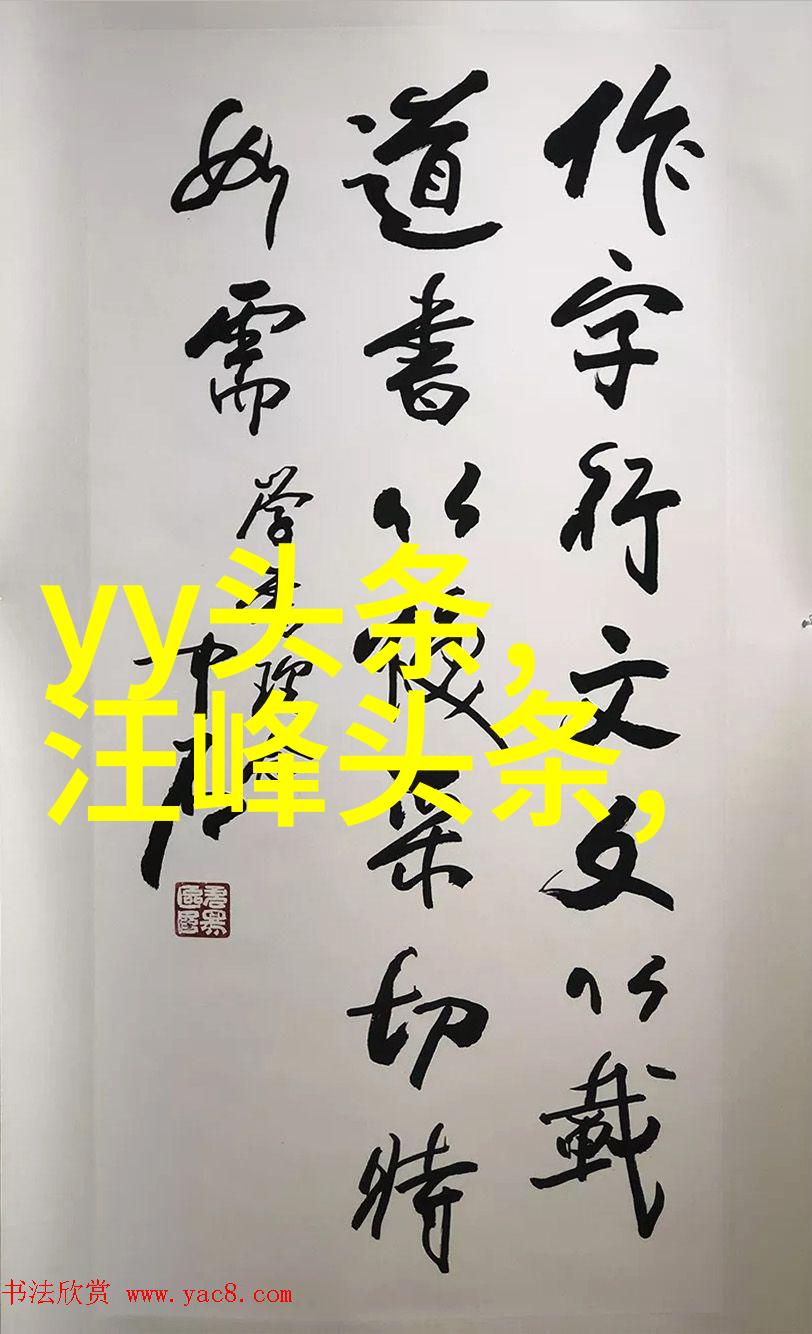 作字行文文以載
道書以采切時
如需
中石
yy头条,
汪峰头条,
书法欣赏 www.yac8.com